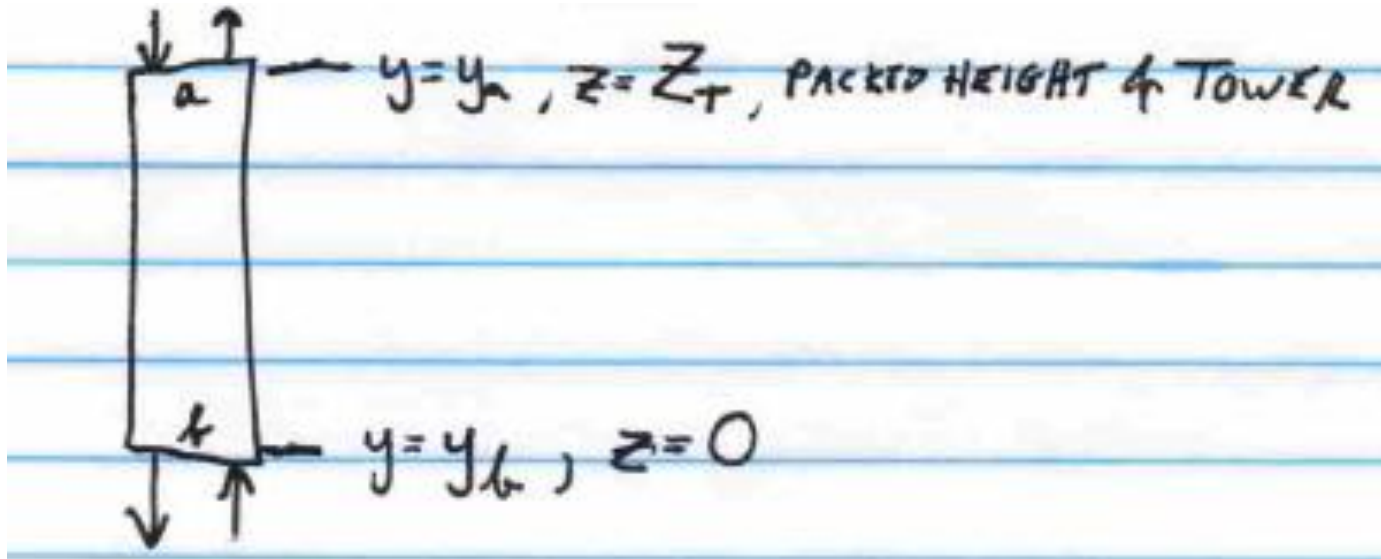 a
y=yₐ, z=Z_T, PACKED HEIGHT of TOWER
b
y=y_b, z=0